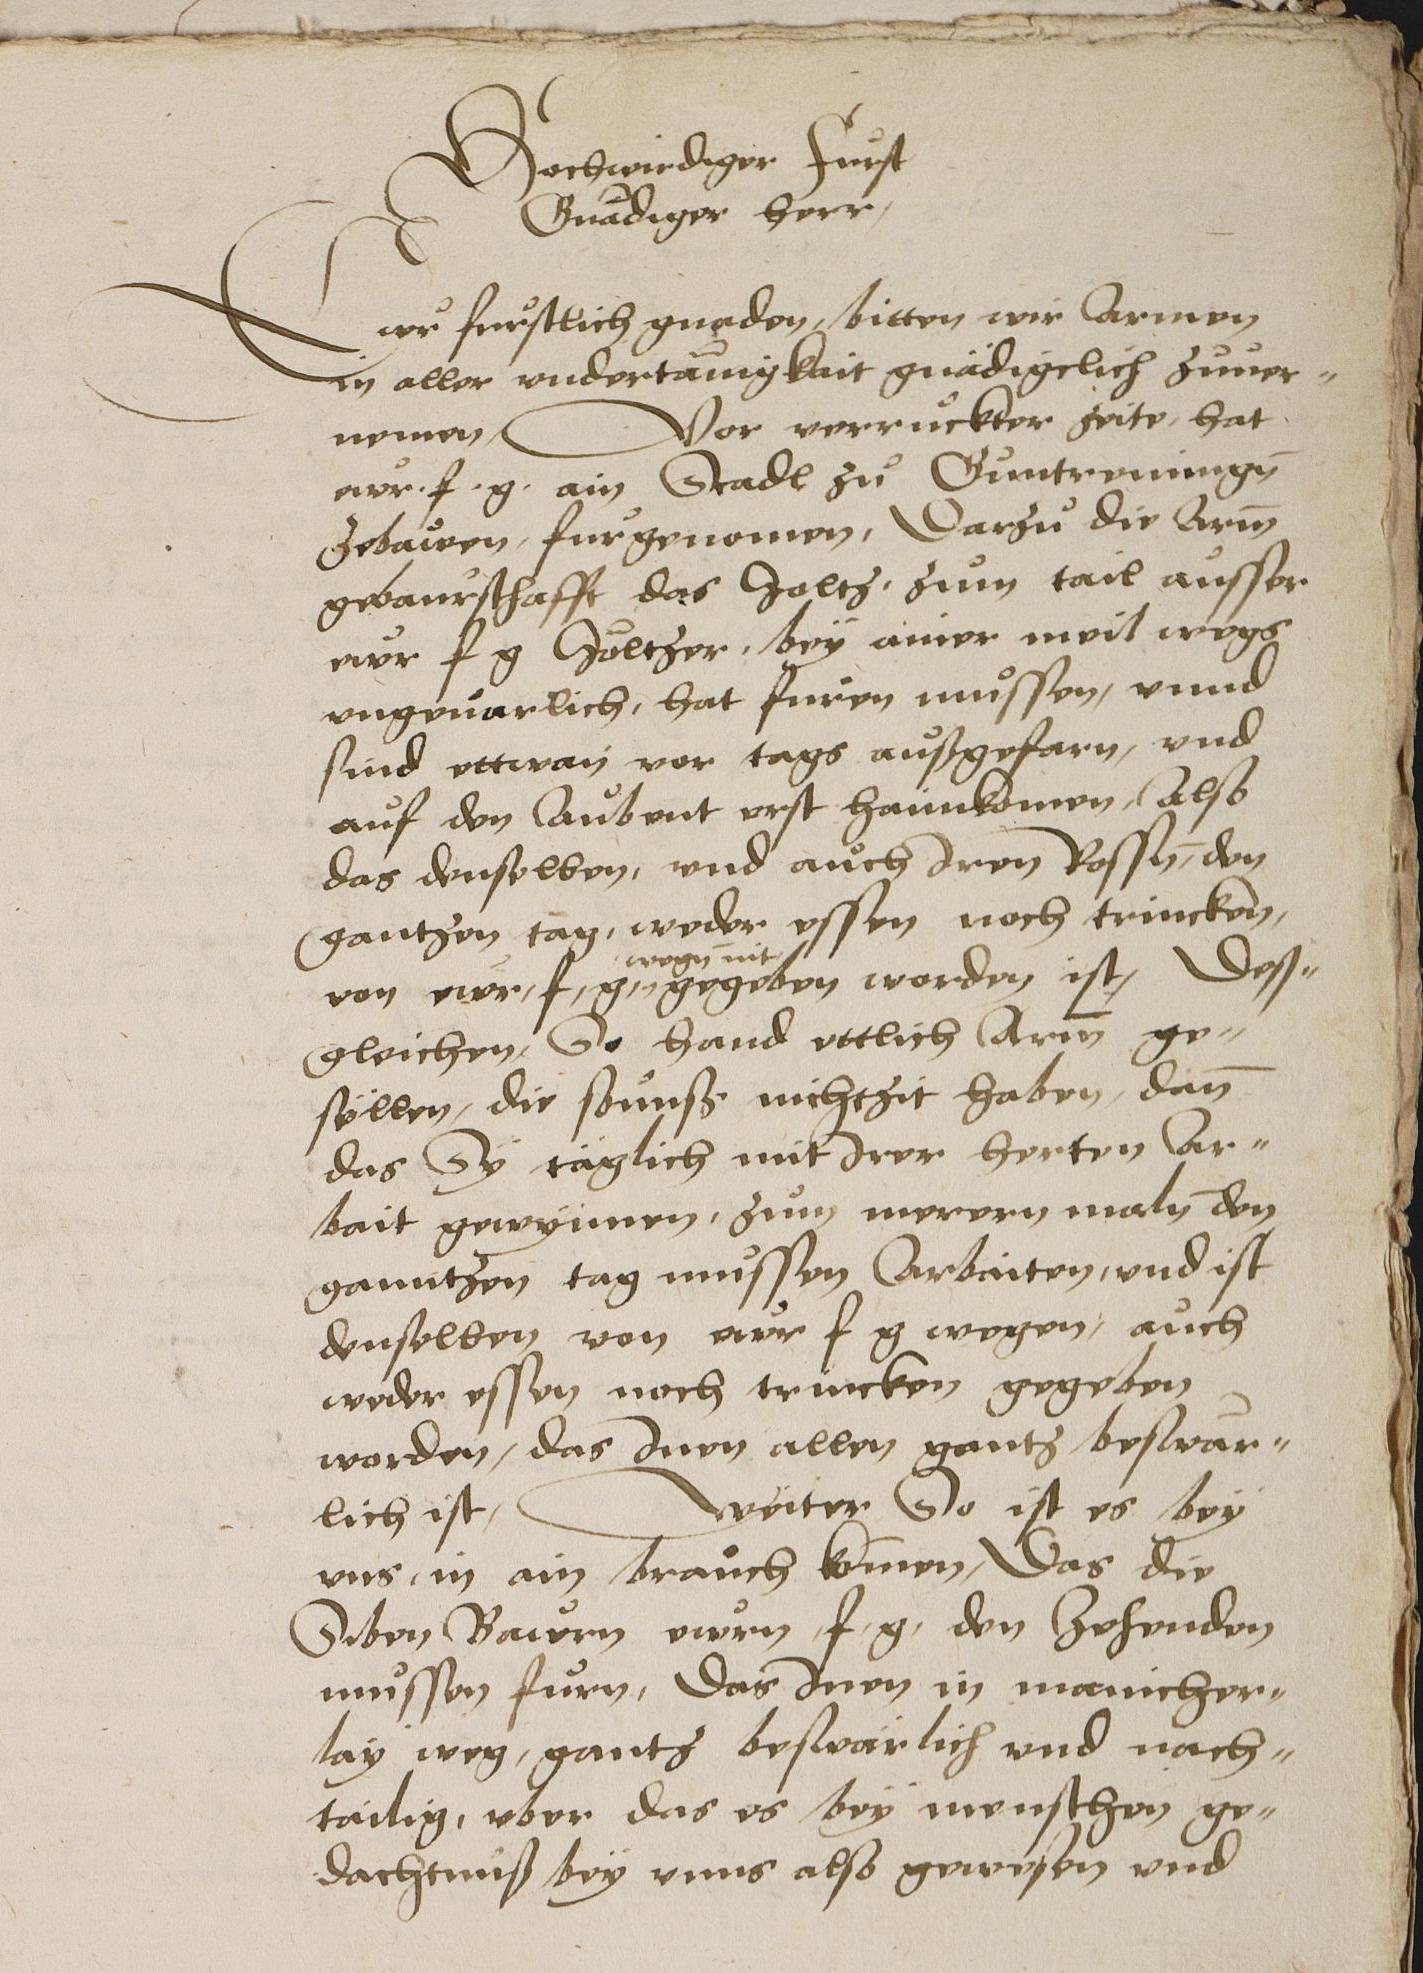 Hochwirdiger Furst
Gnådiger herr,
Ewr furstlich gnaden, bitten wir Armen
in aller vndertånigkait gnådigelich zuuer"
nemen, Vor verruckter zeite, hat
ewr. f. g. ain Stadl zu Guntremingn̄
zebawen, furgenomen, Darzu die Arm̄
gebaurschafft das Holtz, zum tail ausser
ewr f g Höltzer, bey ainer meil wegs
vngeuarlich, hat furen mussen, vnnd
sind ettwan vor tags außgefarn, vnd
auf den Aubent erst haimkomen, Also
das denselben, vnd auch Iren Rossn̄, den
gantzen tag, weder essen noch trincken,
von ewr, f, g, wegn̄ nit gegeben worden ist, Deß"
gleichen, So hand ettlich Arm̄ ge"
söllen, die sounst nichtzit haben, dan̄
das Sy täglich mit Irer herten Ar"
bait gewynnen, zum merern maln den
ganntzen tag mussen Arbaiten, vnd ist
denselben von ewr f g wegen, auch
weder essen noch trincken gegeben
worden, das Inen allen gantz beswår"
lich ist, Weiter So ist es bey
vns, in ain brauch komen, Das die
Siben Bawrn ewrn, f, g, den Zehenden
mussen furn, Das Inen in manicher"
lay weg, gantz beswärlich vnd nach"
tailig, vber das es bey menschen ge"
dachtnuß bey vnns also gewesen vnd